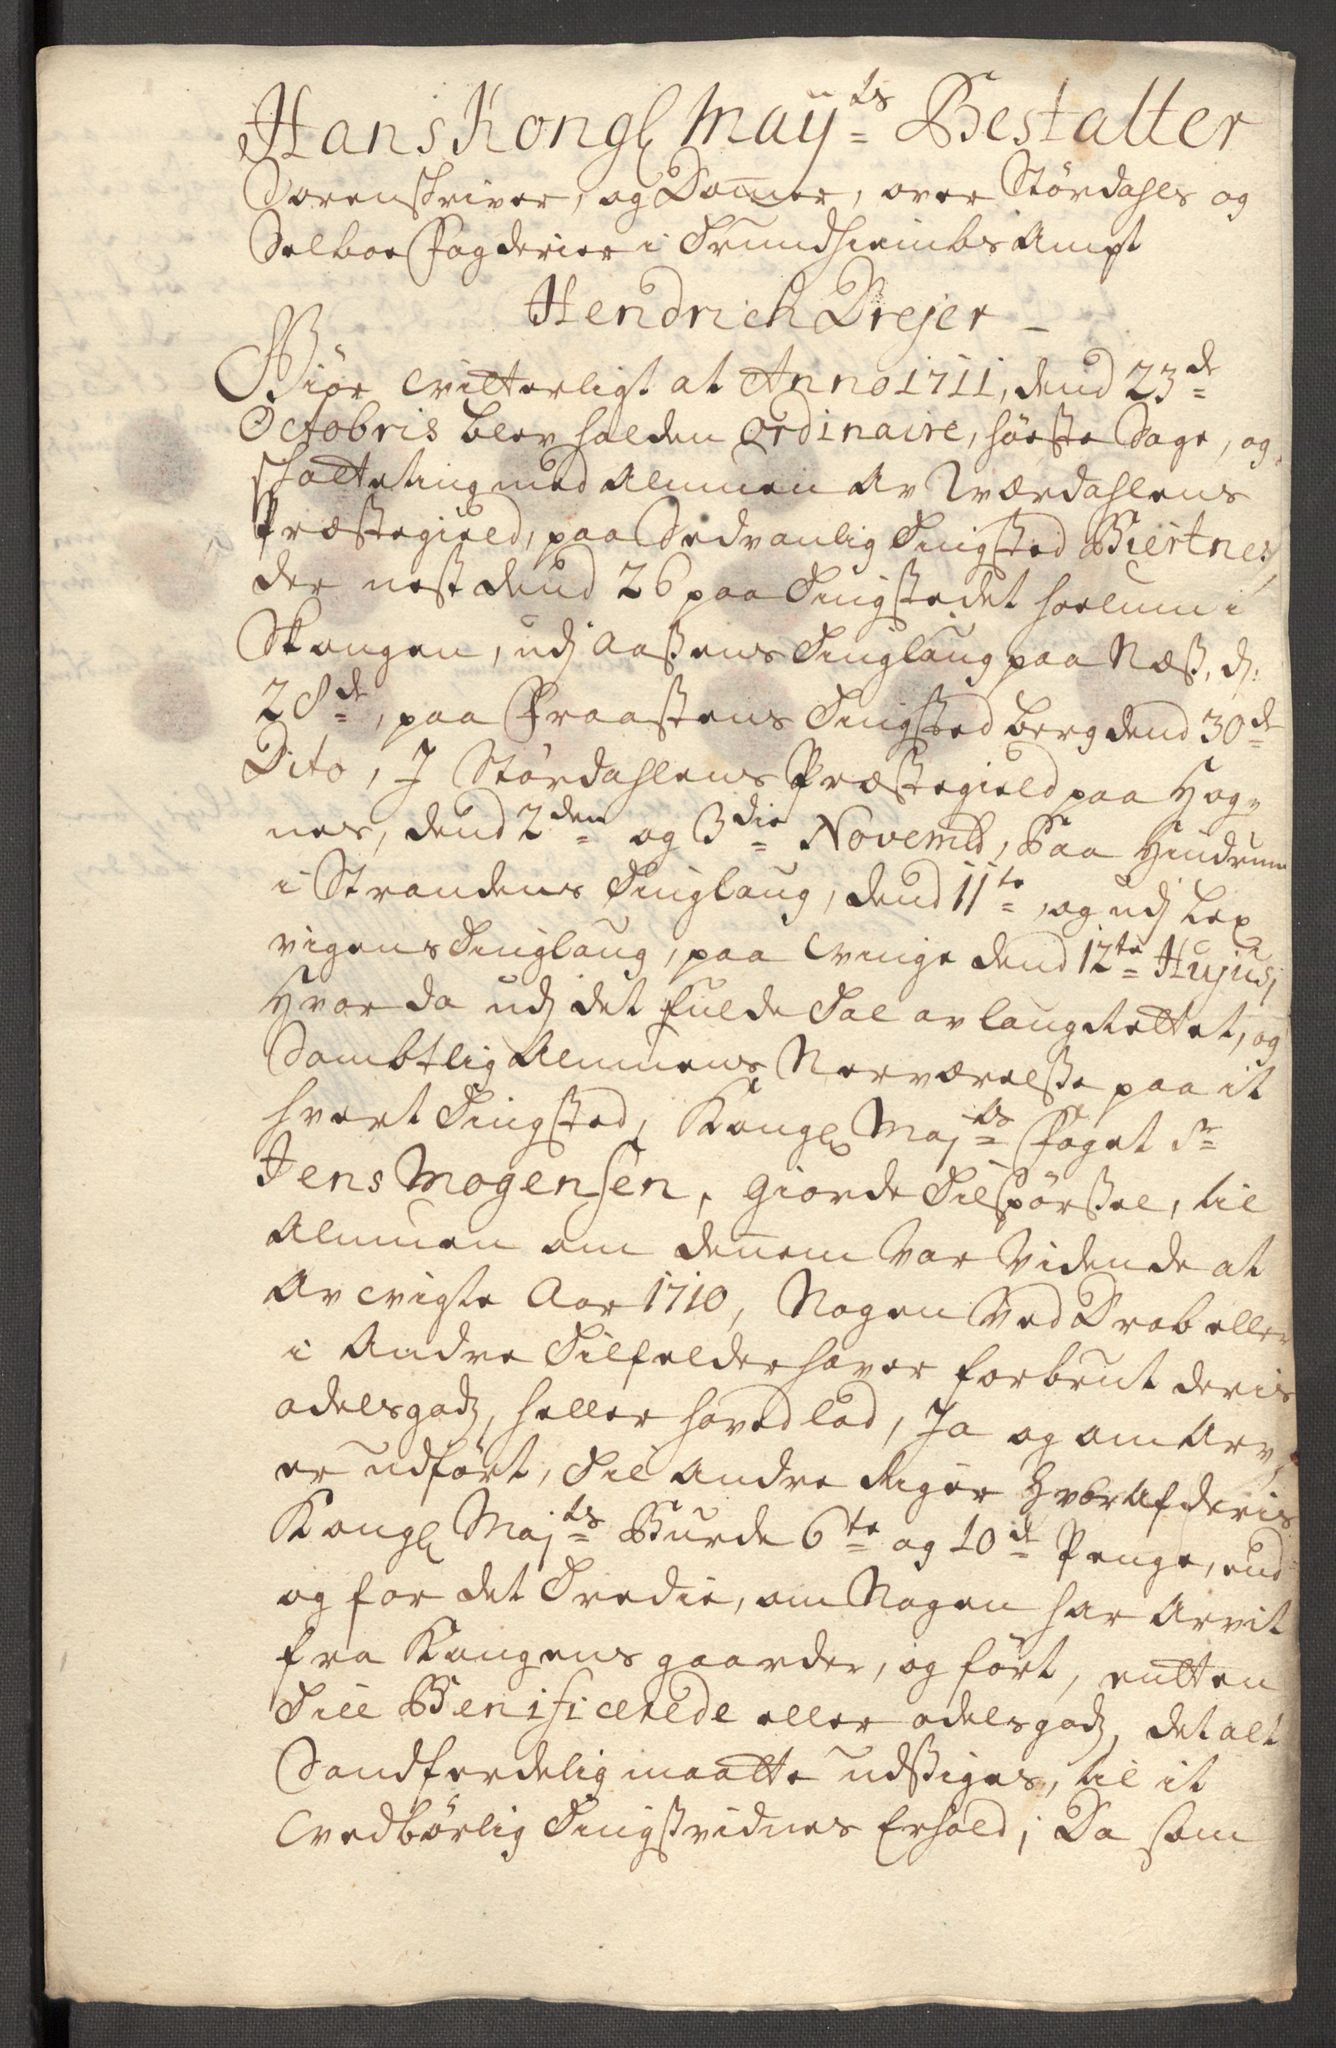 Hans Kongl Maÿ^ts Bestalter
Sorenskriver, og Dommer, over Størdahls og
Selboe fogderier i Trundhiembs Ampt
Hendrich Drejer –
Giør vitterligt at Anno 1711, dend 23^de
Octobris blev holden ordinaire, høste Sage, og
skatteting med Almuen Av Wærdahlens
Præstegield, paa Sedvanlig Tingsted Biertnes,
der nest dend 26 paa Tingstedet hoelum i
Skongen, udj Aaßens Tinglaug paa Næss, d:
28^de, paa Fraastens Tingsted berg dend 30^de
Dito, J Størdahlens Præstegield paa Hog-
nes, dend 2^den og 3^die Novemb, Paa Hindrum
i Strandens Tinglaug, dend 11^te, og udj Lex
vigens Tinglaug, paa Vinge dend 12^te Hujus,
Hvor da udj det fulde Tal av laugrettet, og
Sambtlig Almuens Nerværelße paa it
hvert Tingsted, Kongl Maj^ts Foget S^r
Jens Mogensen, giorde Tilspørßel, til
Almuen om dennem var vidende at
Av vigte Aar 1710, Nogen ved Drab eller
i Andre Tilfelder haver forbrut deris
odelsgodz, heller hoved lod, Ja og om Arv,
er udført, Til Andre Riger Hvor Af deris
Kongl Maj^ts Burde 6^te og 10^de Penge, end
og for det Tredie, om Nogen har Arvit
fra Kongens gaarder, og ført, entten
Till Benificerede eller odelsgodz, det alt
Sandferdelig maatte udsiges, til it
vedbørlig Tingsvidnes Erhold; Da som